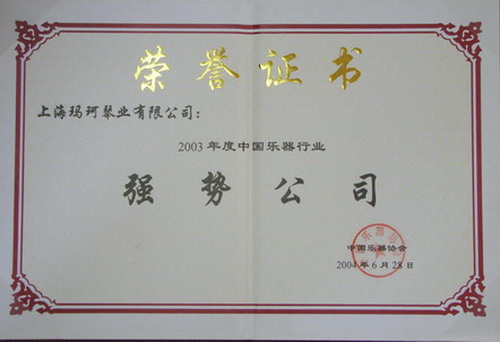 荣誉证书
上海玛珂琴业有限公司：
2003年度中国乐器行业
强势公司
中国乐器协会
2004年6月28日